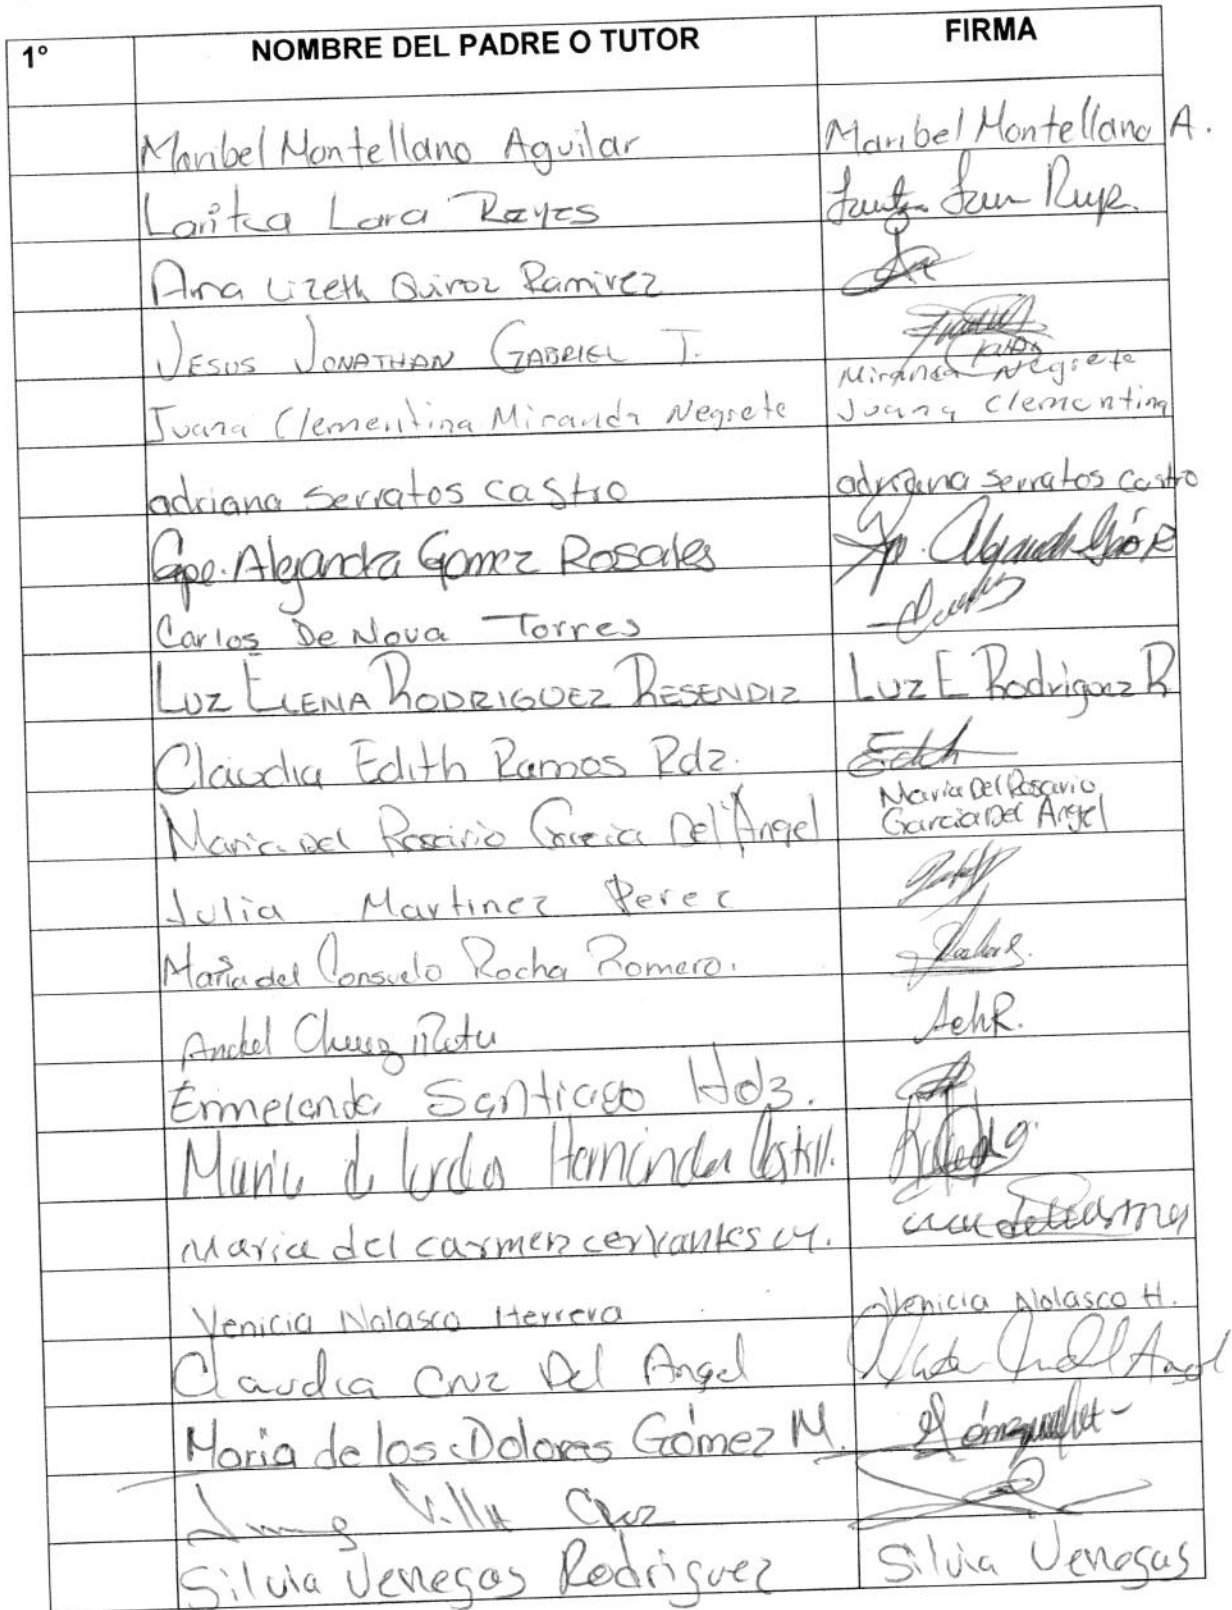 1° NOMBRE DEL PADRE O TUTOR FIRMA
Maribel Montellano Aguilar Maribel Montellano A.
Laritza Lara Reyes
Ana Lizeth Quiroz Ramirez
JESUS JONATHAN GABRIEL T.
Juana Clementina Miranda Negrete Miranda Negrete Juana Clementina
adriana serratos castro adriana serratos castro
Gpe. Alejandra Gomez Rosales
Carlos De Nova Torres
LUZ ELENA RODRIGUEZ RESENDIZ Luz E Rodriguez R
Claudia Edith Ramos Rdz. Edith
Maria Del Rosario Garcia Del Angel Maria Del Rosario Garcia Del Angel
Julia Martinez Perez
Maria del Consuelo Rocha Romero.
AchR.
Ermelanda Santiago Hdz.
Maria de
Maria del carmen cervantes M.
Venicia Nolasco Herrera Venicia Nolasco H.
Claudia Cruz Del Angel
Maria de los Dolores Gómez M.
Villa Cruz
Silvia Venegas Rodriguez Silvia Venegas